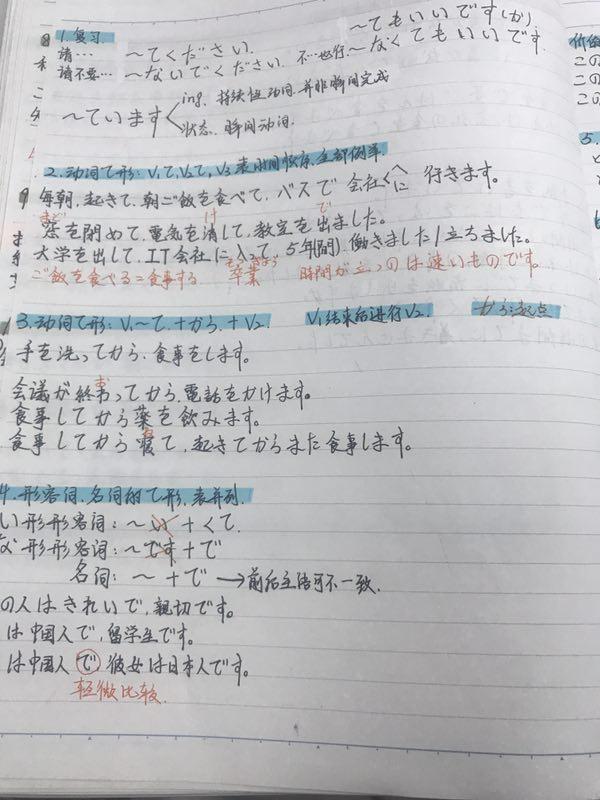 1.复习.
请… ～てください.
请不要… ～ないでください. 不…也行.～なくてもいいです.
～てもいいです(か)
～ています
ing. 持续性动词.并非瞬间完成
状态. 瞬间动词.
2.动词て形: V₁て,V₂て,V₃表时间顺序.全部例举.
毎朝.起きて.朝ご飯を食べて,バスで会社へ/に行きます。
まど け で
窓を閉めて,電気を消して,教室を出ました。
大学を出して,IT会社に入って,5年(間).働きました/立ちました。
ご飯を食べる=食事する 卒業 時間が立つのは速いものです。
3.动词て形: V₁～て.+から.+V₂. V₁结束后进行V₂. から:起点
手を洗ってから.食事をします。
会議が終わってから,電話をかけます。
食事してから薬を飲みます。
食事してから寝て,起きてからまた食事します。
4.形容词.名词的て形.表并列.
い形形容词:～い+くて.
な形形容词:～です+で
名词:～+で→前后主语可不一致.
の人はきれいで,親切です。
は中国人で,留学生です。
は中国人で,彼女は日本人です。
轻微比较.
价
この
この
この
5.